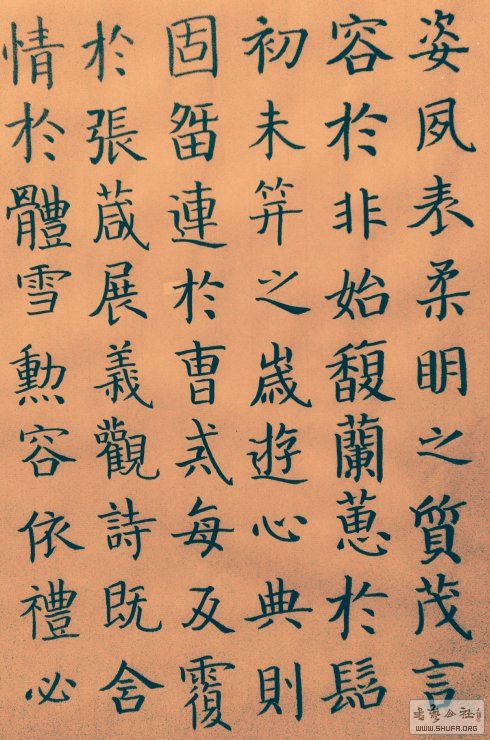 姿夙表柔明之質茂言
容於非始馥蘭蕙於髫
初未笄之歳遊心典則
固留連於曹式每及覆
於張葴展義觀詩既舍
情於體雪勲容依禮必
書藝公社
WWW.SHUFA.ORG